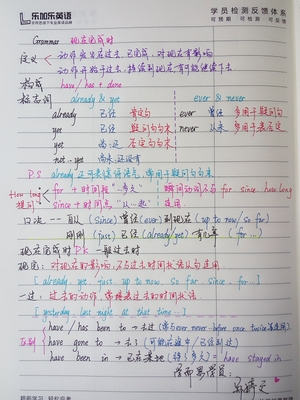 乐加乐英语
学员检测反馈体系
可预期 可检测 可反馈
Grammar 现在完成时
定义 动作发生在过去,已完成,对现在有影响
动作开始于过去,持续到现在有可能继续下去
构成 have / has + done
标志词 already & yet ever & never
already 已经 肯定句 ever 曾经 多用于疑问句
yet 已经 疑问句句末 never 从未 多用于表否定
yet 尚未 否定句句末
not...yet 尚未,还没有
P.S already 还可表惊讶语气,常用于疑问句句末
How long 提问 for + 时间段 "多久" 瞬间动词不与 for since how long
since + 时间点 "从...起" 连用
口决 一直以 (since) 曾经 (ever) 到现在 (up to now, so far)
刚刚 (just) 已经 (already/yet) 有 (for ..)
现在完成时 PK 一般过去时
现完: 对现在的影响,不与过去时间状语连用
[ already, yet, just, up to now, so far, since, for..]
一过: 过去的动作,常接表过去的时间状语
[ yesterday, last night, at that time...]
区别 have / has been to → 去过 (常与 ever never before once twice 等连用)
have gone to → 去了 (可能在途中/已经到达)
have been in → 已在某地 (待了多久) = have stayed in
学而思学员: